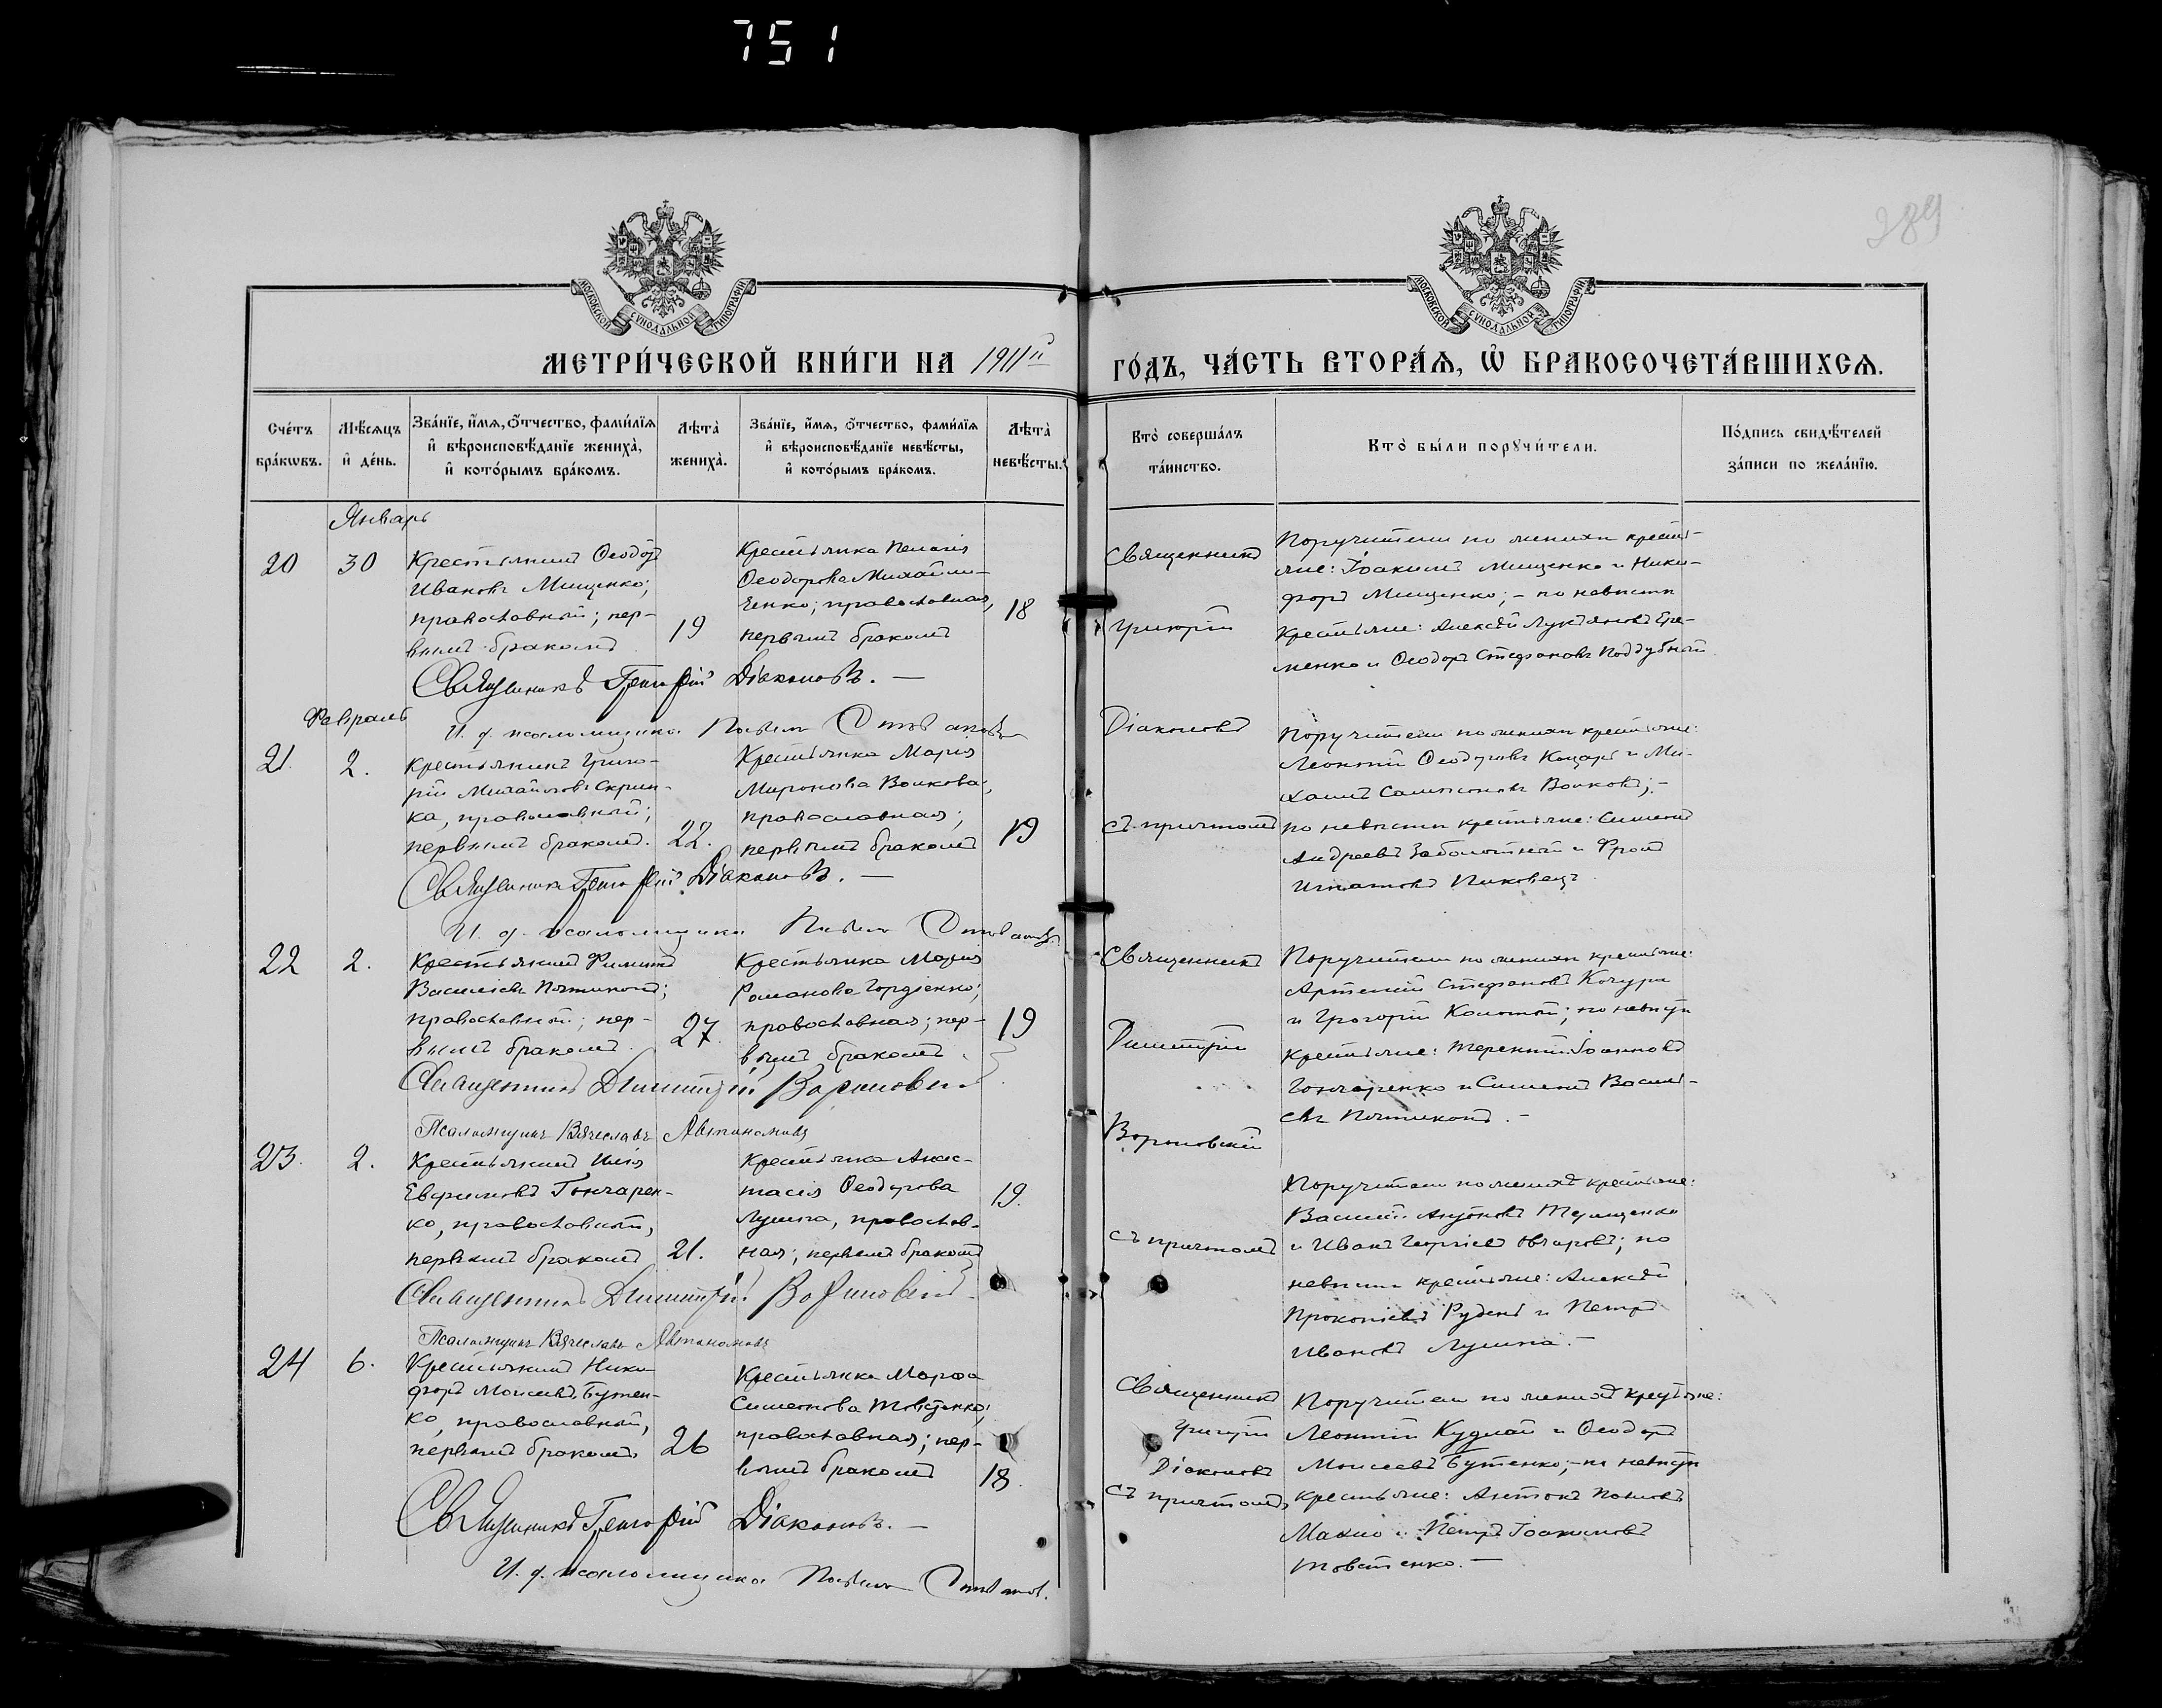 751
389
МОСКОВСКОЙ СѴНОДАЛЬНОЙ ТИПОГРАФІИ
МОСКОВСКОЙ СѴНОДАЛЬНОЙ ТИПОГРАФІИ
МЕТРИ́ЧЕСКОЙ КНИ́ГИ НА 1911й
ГО́ДЪ, ЧА́СТЬ ВТОРА́Ѧ, Ѡ҆ БРАКОСОЧЕТА́ВШИХСѦ.
Сче́тъ бра́кѡвъ.
Мѣ́сѧцъ и҆ де́нь.
Зва́нїе, и҆́мѧ, о҆́тчество, фами́лїѧ и҆ вѣроисповѣ́данїе жениха̀, и҆ кото́рымъ бра́комъ.
Лѣта̀ жениха̀.
Зва́нїе, и҆́мѧ, о҆́тчество, фами́лїѧ и҆ вѣроисповѣ́данїе невѣ́сты, и҆ кото́рымъ бра́комъ.
Лѣта̀ невѣ́сты.
Кто̀ соверша́лъ та́инство.
Кто̀ бы́ли порꙋчи́тели.
По́дпись свидѣ́телей за́писи по жела́нїю.
Январь
20
30
Крестьянинъ Ѳеодоръ
Ивановъ Мищенко;
православный; пер-
вымъ бракомъ
19
Крестьянка Пелагія
Ѳеодорова Михайли-
ченко; православная,
первымъ бракомъ
18
Священникъ
Григорій
Поручители по женихѣ крестья-
не: Іоакимъ Мищенко и Ники-
форъ Мищенко; - по невѣстѣ
крестьяне: Алексѣй Лукьяновъ Ере-
менко и Ѳеодоръ Стефановъ Поддубный
Священникъ Григорій Діаконовъ. —
Февраль
И. д. псаломщика Павелъ
21.
2.
Крестьянинъ Григо-
рій Михайловъ Скрип-
ка, православный;
первымъ бракомъ.
22.
Крестьянка Марія
Миронова Волкова;
православная;
первымъ бракомъ
19
Діаконовъ
съ причтомъ
Поручители по женихѣ крестьяне:
Леонтій Ѳеодоровъ Коцарь и Ми-
хаилъ Сампсоновъ Волковъ; -
по невѣстѣ крестьяне: Симеонъ
Андреевъ Заболотный и Фролъ
Игнатовъ Пиковецъ
Священникъ Григорій Діаконовъ. —
И. д. псаломщика Павелъ
22
2.
Крестьянинъ Филиппъ
Васильевъ
православный; пер-
вымъ бракомъ.
27.
Крестьянка Марія
Романова Гордіенко;
православная; пер-
вымъ бракомъ.
19
Священникъ
Димитрій
Вороновскій
Поручители по женихѣ крестьяне:
Артемій Стефановъ Кочура
и Григорій Колотій; по невѣстѣ
крестьяне: Терентій Іоанновъ
Гончаренко и Симеонъ Василь-
евъ
Священникъ Димитрій Вороновскій
Псаломщикъ Вячеславъ Автономовъ
23.
2.
Крестьянинъ Илія
Евфимовъ Гончарен-
ко, православный,
первымъ бракомъ
21.
Крестьянка Анас-
тасія Ѳеодорова
Лушпа, православ-
ная; первымъ бракомъ
19.
съ причтомъ
Поручители по женихѣ крестьяне:
Василій Антоновъ Терещенко
и Иванъ Георгіевъ Овчаровъ; по
невѣстѣ крестьяне: Алексѣй
Прокопіевъ Руденъ и Петръ
Ивановъ Лушпа. -
Священникъ Димитрій Вороновскій
Псаломщикъ Вячеславъ Автономовъ
24
6.
Крестьянинъ Ники-
форъ Моисеевъ Бутен-
ко, православный,
первымъ бракомъ
26
Крестьянка Марѳа
Симеонова Товстенко;
православная; пер-
вымъ бракомъ
18.
Священникъ
Григорій
Діаконовъ
съ причтомъ
Поручители по женихѣ крестьяне:
Леонтій Кудлай и Ѳеодоръ
Моисеевъ Бутенко; - по невѣстѣ
крестьяне: Антонъ Павловъ
Махно и Петръ Іоакимовъ
Товстенко. —
Священникъ Григорій Діаконовъ. —
И. д. псаломщика Павелъ